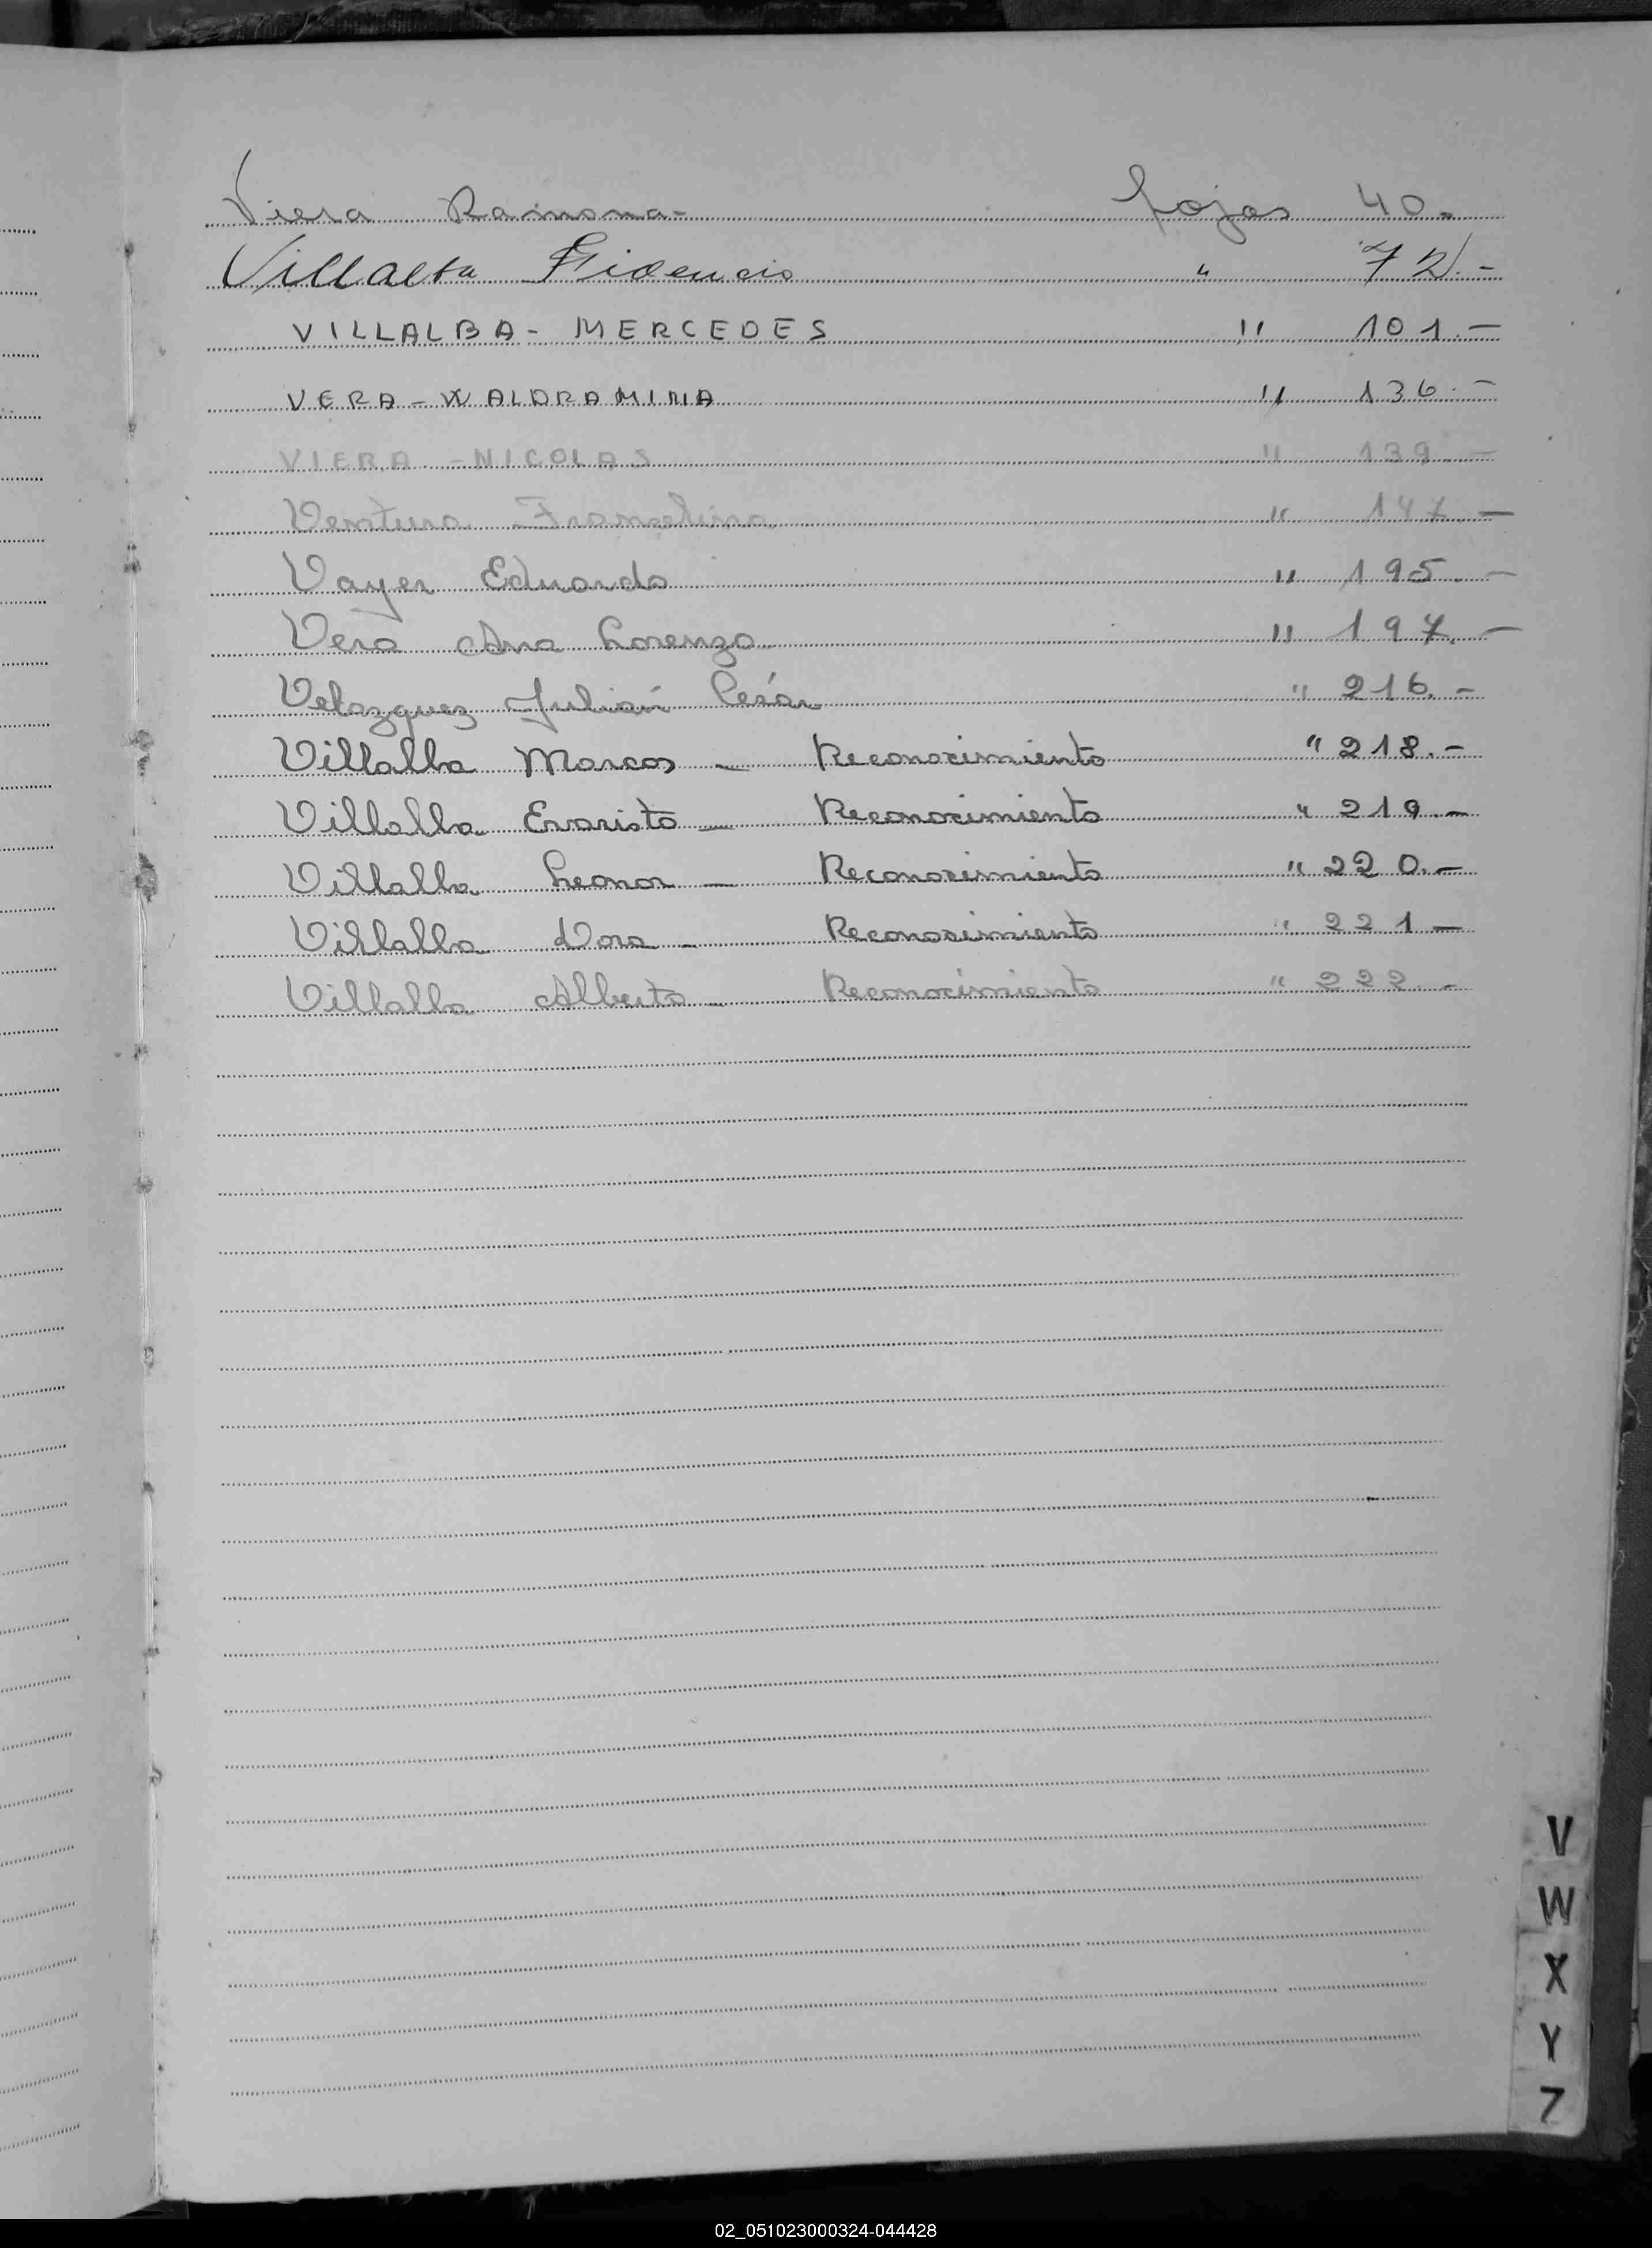 Viera Ramona- fojas 40.
Villalba Fidencio " 72.-
VILLALBA - MERCEDES " 101.-
VERA - WALDRAMINA " 136.-
VIERA - NICOLAS " 139.-
Ventura Francelina " 147.-
Vayer Eduardo " 195.-
Vera Ana Lorenza " 197.-
Velazquez Julian César " 216.-
Villalba Marcos - Reconocimiento " 218.-
Villalba Evaristo - Reconocimiento " 219.-
Villalba Leonor - Reconocimiento " 220.-
Villalba Dora - Reconocimiento " 221-
Villalba Alberto - Reconocimiento " 222.-
V
W
X
Y
Z
02_051023000324-044428